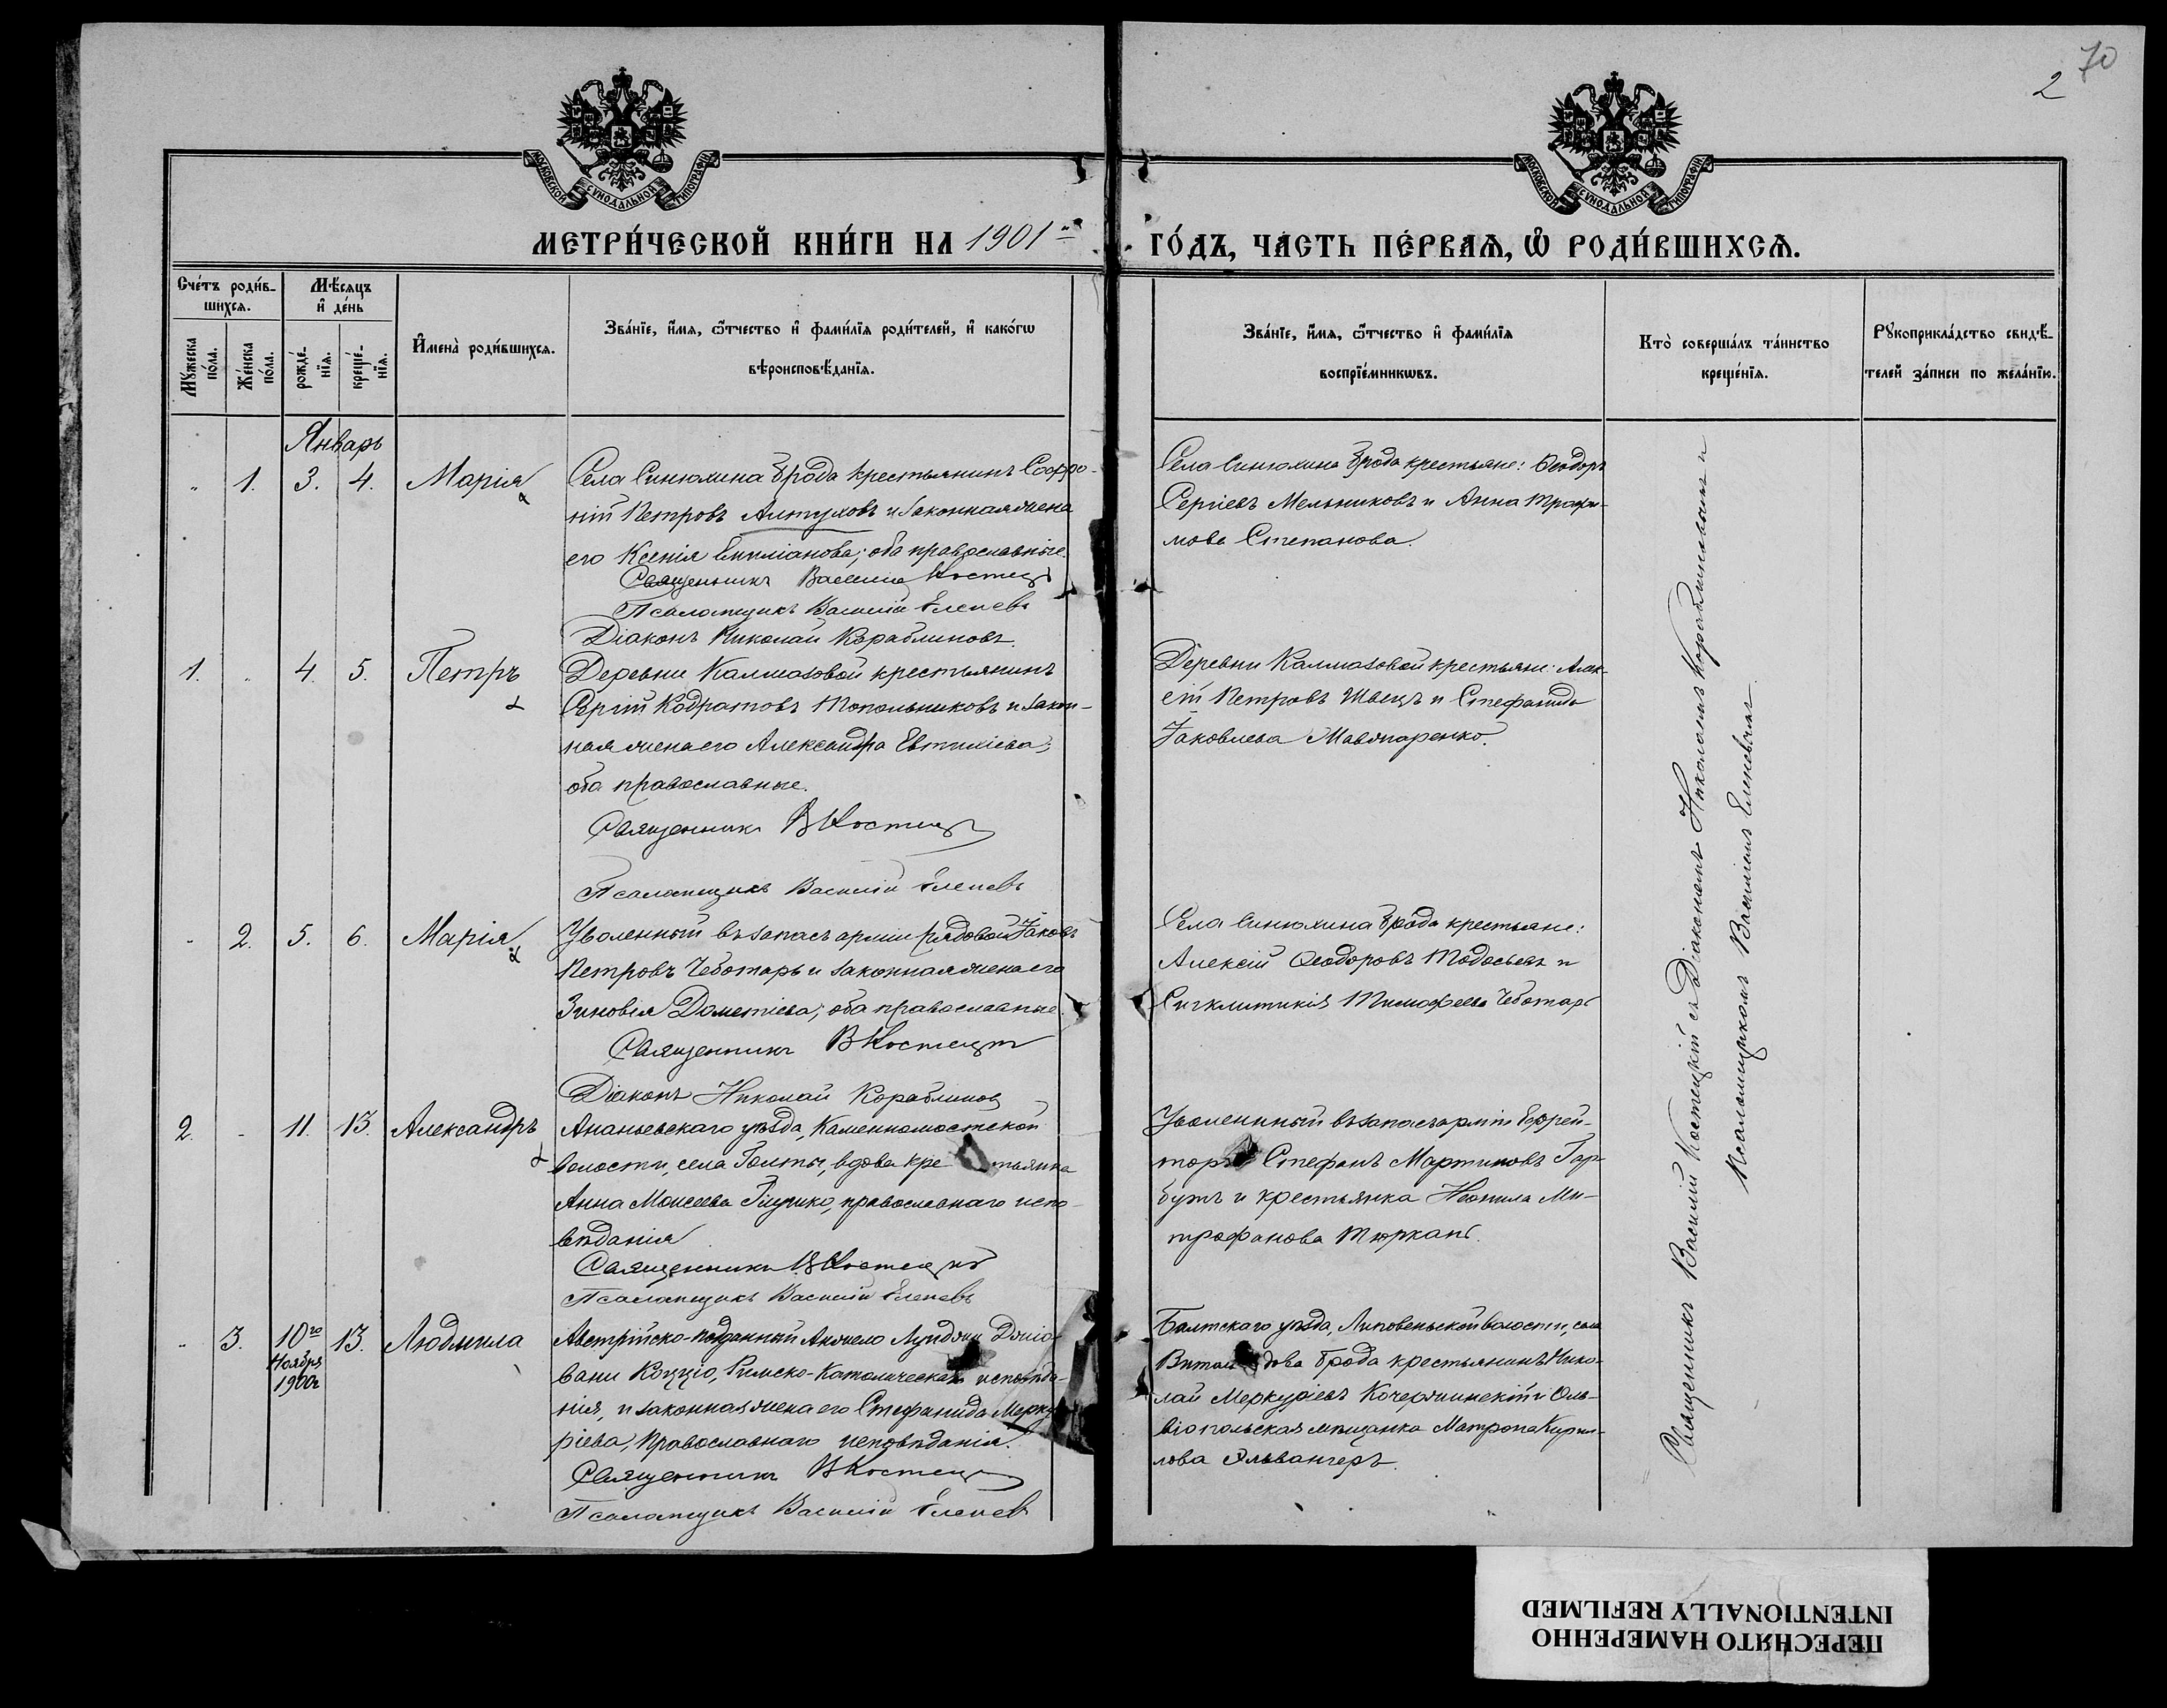 70
2
МОСКОВСКОЙ СѴНОДАЛЬНОЙ ТИПОГРАФІИ
МОСКОВСКОЙ СѴНОДАЛЬНОЙ ТИПОГРАФІИ
МЕТРИ́ЧЕСКОЙ КНИ́ГИ НА 1901й
ГО́ДЪ, ЧА́СТЬ ПЕ́РВАѦ, Ѽ РОДИ́ВШИХСѦ.
Сче́тъ роди́в-
шихсѧ.
Мꙋ́жеска
по́ла.
Же́нска
по́ла.
Мѣ́сѧцъ
и҆ де́нь
рожде́-
нїѧ.
креще́-
нїѧ.
И҆мена̀ роди́вшихсѧ.
Зва́нїе, и҆́мѧ, ѻ҆́тчество и҆ фами́лїѧ роди́телей, и҆ како́гѡ
вѣроисповѣ́данїѧ.
Зва́нїе, и҆́мѧ, ѻ҆́тчество и҆ фами́лїѧ
воспрїе́мникѡвъ.
Кто̀ соверша́лъ та́инство
креще́нїѧ.
Рꙋкоприкла́дство свидѣ́-
телей за́писи по жела́нїю.
Январь
" 1. 3. 4. Марія
Села Синюхина Брода крестьянинъ Софро-
ній Петровъ Алтуховъ и законная жена
его Ксенія Емиліанова; оба православные.
Священникъ Василій Костецкій
Псаломщикъ Василій Еленевъ
Діаконъ Николай Кораблиновъ
Села Синюхина Брода крестьяне: Ѳеодоръ
Сергіевъ Мельниковъ и Анна Трофи-
мова Степанова.
1. " 4. 5. Петръ
Деревни Калмазовой крестьянинъ
Сергій Кодратовъ Топольниковъ и закон-
ная жена его Александра Евтихіева;
оба православные.
Священникъ В Костецкій
Псаломщикъ Василій Еленевъ
Деревни Калмазовой крестьяне: Алек-
сій Петровъ Швецъ и Стефанида
Іаковлева
" 2. 5. 6. Марія
Уволенный въ запасъ арміи рядовой Іаковъ
Петровъ Чеботарь и законная жена его
Зиновія Дометіева; оба православные.
Священникъ В Костецкій
Діаконъ Николай Кораблиновъ
Села Синюхина Брода крестьяне:
Алексій Ѳеодоровъ Тодосьевъ и
Сигклитикія Тимофеева Чеботарь
2. " 11. 13. Александръ
Ананьевскаго уѣзда, Каменномостской
волости, села Голты, вдова кре тьянка
Анна Моисеева православнаго испо-
вѣданія
Священникъ В Костецкій
Псаломщикъ Василій Еленевъ
Уволенный въ запасъ арміи Ефрей-
торъ Стефанъ Мартиновъ Гар-
бузъ и крестьянка Неонила Ми-
трофанова Тюркатъ.
" 3. 10го Ноября 1900г 13. Людмила
Австрійско-подданный Анжело Луиджи Джіо-
вани Коцціо, Римско-Католическаго исповѣда-
нія, и законная жена его Стефанида Мерку-
ріева, Православнаго исповѣданія.
Священникъ В Костецкій
Псаломщикъ Василій Еленевъ
Балтскаго уѣзда, Липовеньской волости, села
Витольдова Брода крестьянинъ Нико-
лай Меркуріевъ Кочержинскій и Оль-
віопольская мѣщанка Матрона Кирил-
лова Эльвангеръ.
Священникъ Василій Костецкій съ Діакономъ Николаемъ Кораблиновымъ и
Псаломщикомъ Василіемъ Еленевымъ.
ПЕРЕСНЯТО НАМЕРЕННО
INTENTIONALLY REFILMED